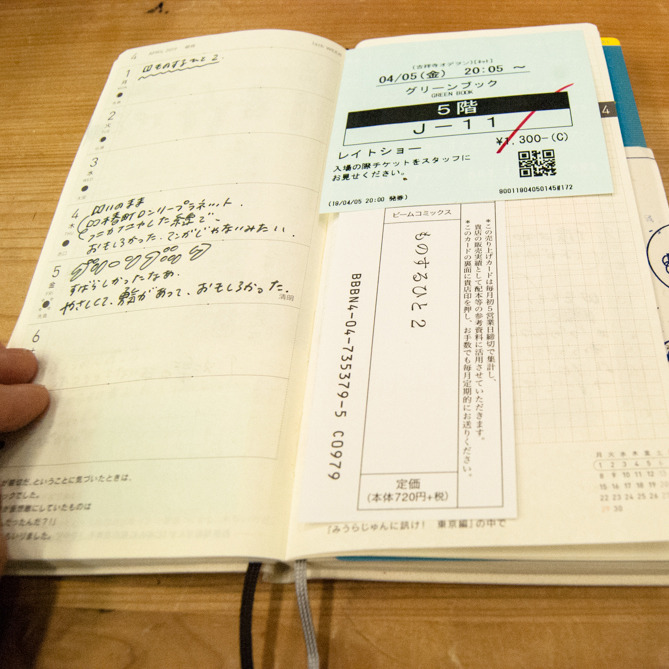 4 APRIL 2019
1
月
ものするひと 2
2
火
3
水
4
木
口いのまま
四本商町ロンリープラネット.
おもしろかった. マンガじゃないみたい.
5
金
グリーンブック
すばらしかったなあ.
やさしくて、勇気があって、おもしろかった.
清明
6
ということに気づいたときは、
ックでした。
が仮想敵にしていたものは
だったんだ?!」
いりました。
(吉祥寺オデヲン)[ネット]
04/05(金) 20:05 ~
グリーンブック
GREEN BOOK
5階
J-11
¥1,300-(C)
レイトショー
入場の際チケットをスタッフに
お見せください。
(19/04/05 20:00 発券)
80011804050145#172
4
ビームコミックス
ものするひと 2
*この売り上げカードは毎月初5営業日締切で集計し、
貴店の販売実績として配本等の参考資料に活用させていただきます。
*このカードの裏面に貴店印を押し、お手数でも毎月定期的にお送りください。
BBBN4-04-735379-5 C0979
定価
(本体720円+税)
『みうらじゅんに訊け! 東京編』の中で
月 火 水 木 金 土
1 2 3 4 5 6
8 9 10 11 12 13
15 16 17 18 19 20
22 23 24 25 26 27
29 30